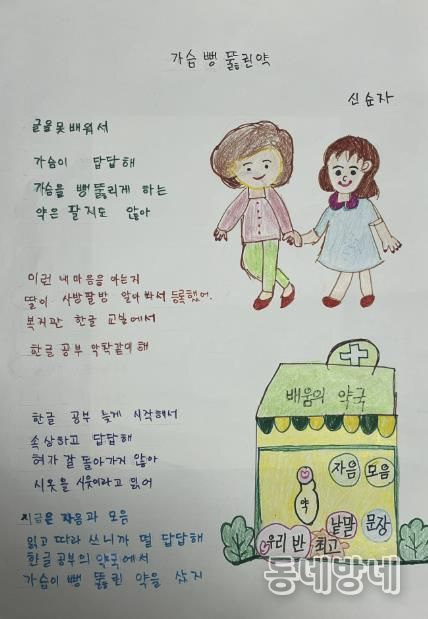 가슴 뻥 뚫린 약
신순자
글을 못 배워서
가슴이 답답해
가슴을 뻥 뚫리게 하는
약은 팔지도 않아
이런 내 마음을 아는지
딸이 사방팔방 알아봐서 등록했어.
복지관 한글 교실에서
한글 공부 악착같이 해
한글 공부 늦게 시작해서
속상하고 답답해
혀가 잘 돌아가지 않아
시옷을 시웃이라고 읽어
지금은 자음과 모음
읽고 따라 쓰니까 덜 답답해
한글 공부의 약국에서
가슴이 뻥 뚫린 약을 샀지
배움의 약국
자음
모음
약
낱말
문장
우리 반
최고
동네방네